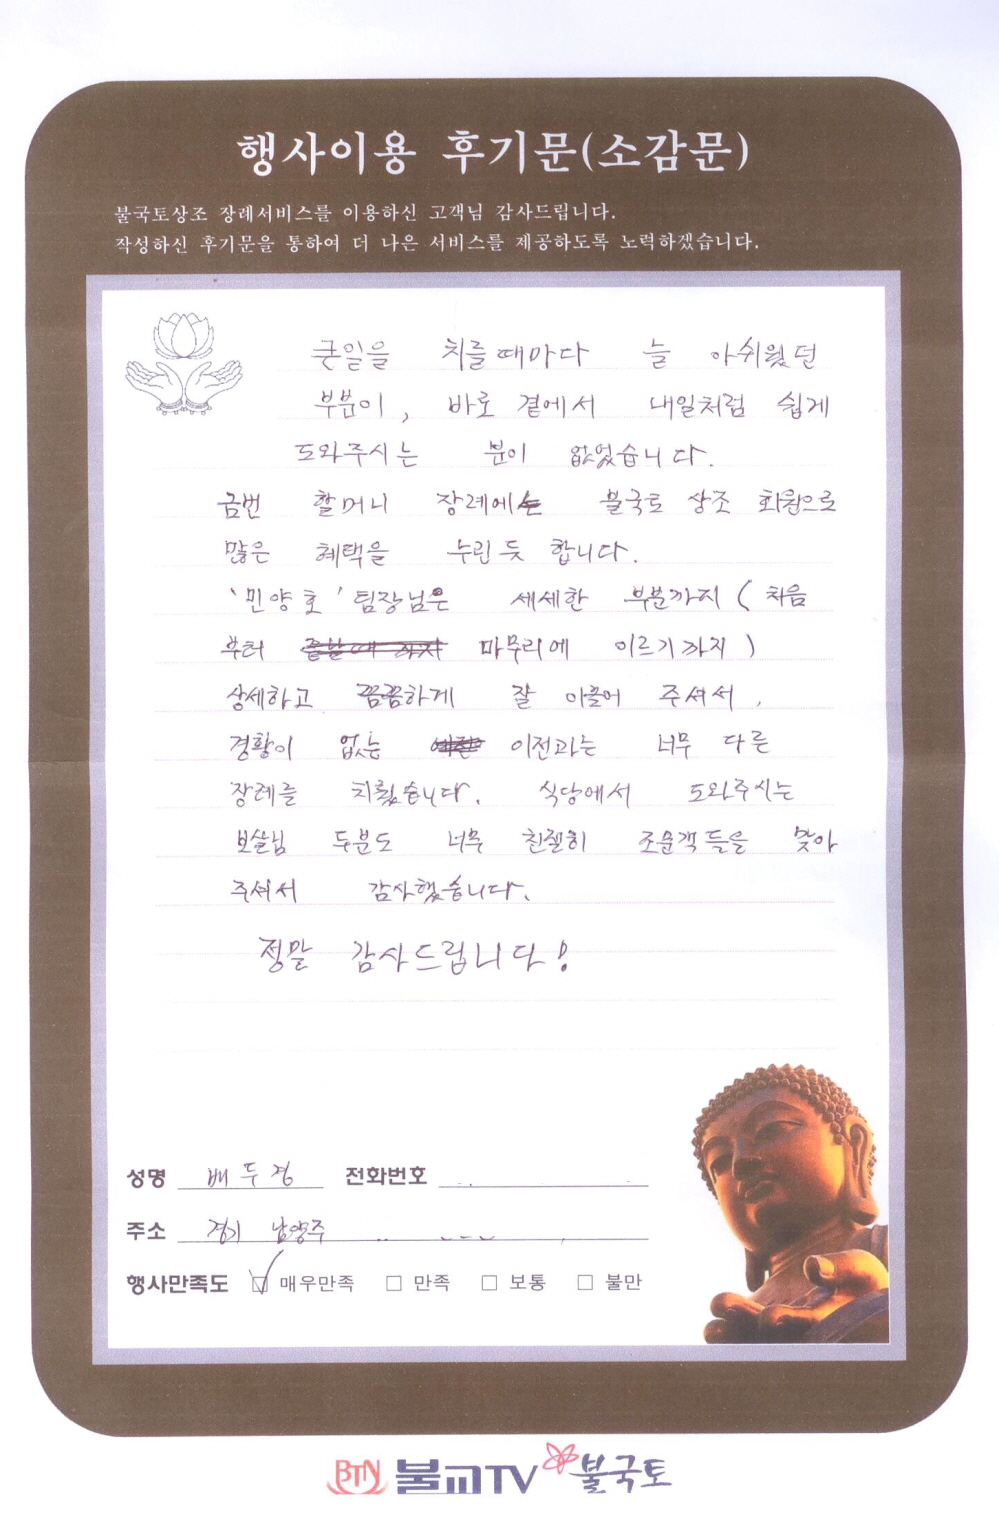 행사이용 후기문(소감문)
불국토상조 장례서비스를 이용하신 고객님 감사드립니다.
작성하신 후기문을 통하여 더 나은 서비스를 제공하도록 노력하겠습니다.
큰일을 치를 때마다 늘 아쉬웠던
부분이, 바로 곁에서 내일처럼 쉽게
도와주시는 분이 없었습니다.
금번 할머니 장례에는 불국토 상조 회원으로
많은 혜택을 누린 듯 합니다.
'민양호' 팀장님은 세세한 부분까지 (처음
부터 마무리에 이르기까지)
상세하고 꼼꼼하게 잘 이끌어 주셔서,
경황이 없는 이전과는 너무 다른
장례를 치뤘습니다. 식당에서 도와주시는
보살님 두분도 너무 친절히 조문객들을 맞아
주셔서 감사했습니다.
정말 감사드립니다!
성명 배두경 전화번호
주소 경기 남양주
행사만족도 ☑ 매우만족 □ 만족 □ 보통 □ 불만
BTN 불교TV 불국토